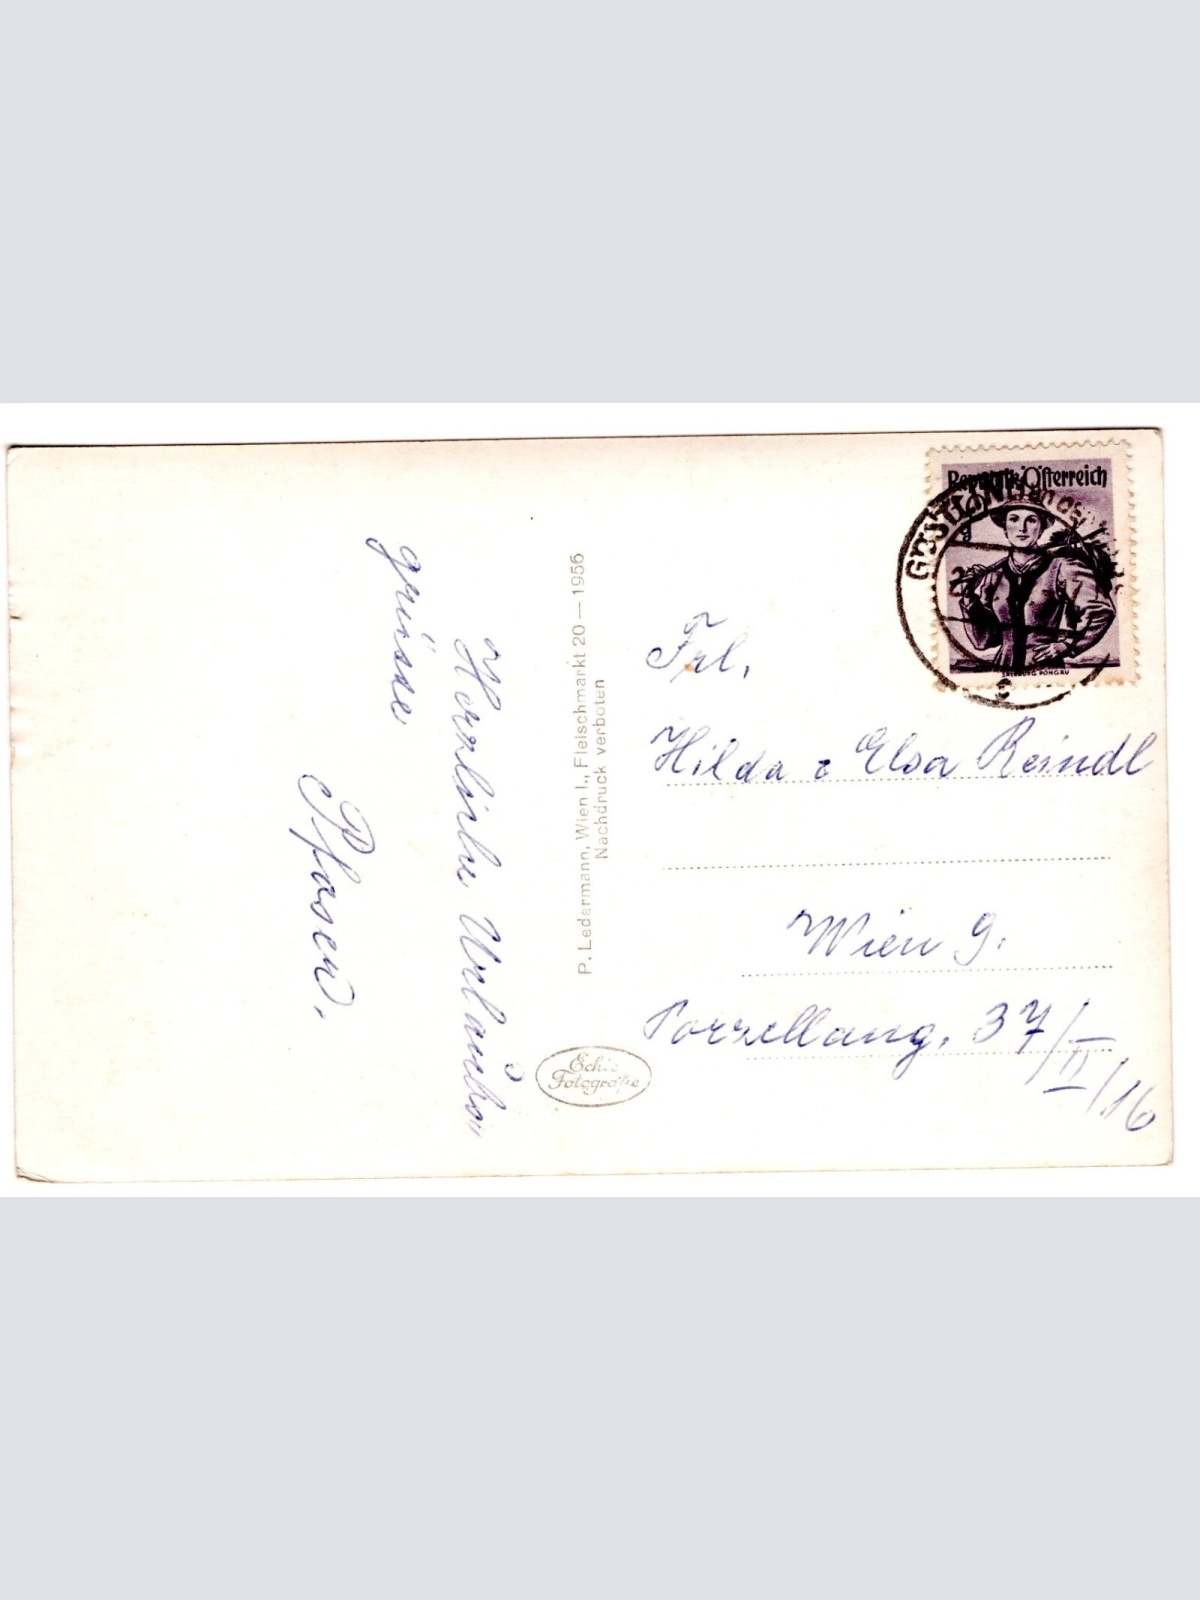 Herzliche Urlaubs
grüsse
P. Ledermann, Wien I., Fleischmarkt 20 — 1956
Nachdruck verboten
Echte
Fotografie
Republik Österreich
SALZBURG PONGAU
Frl.
Hilda u Elsa Reindl
Wien 9.
Porzellang. 37/II/16